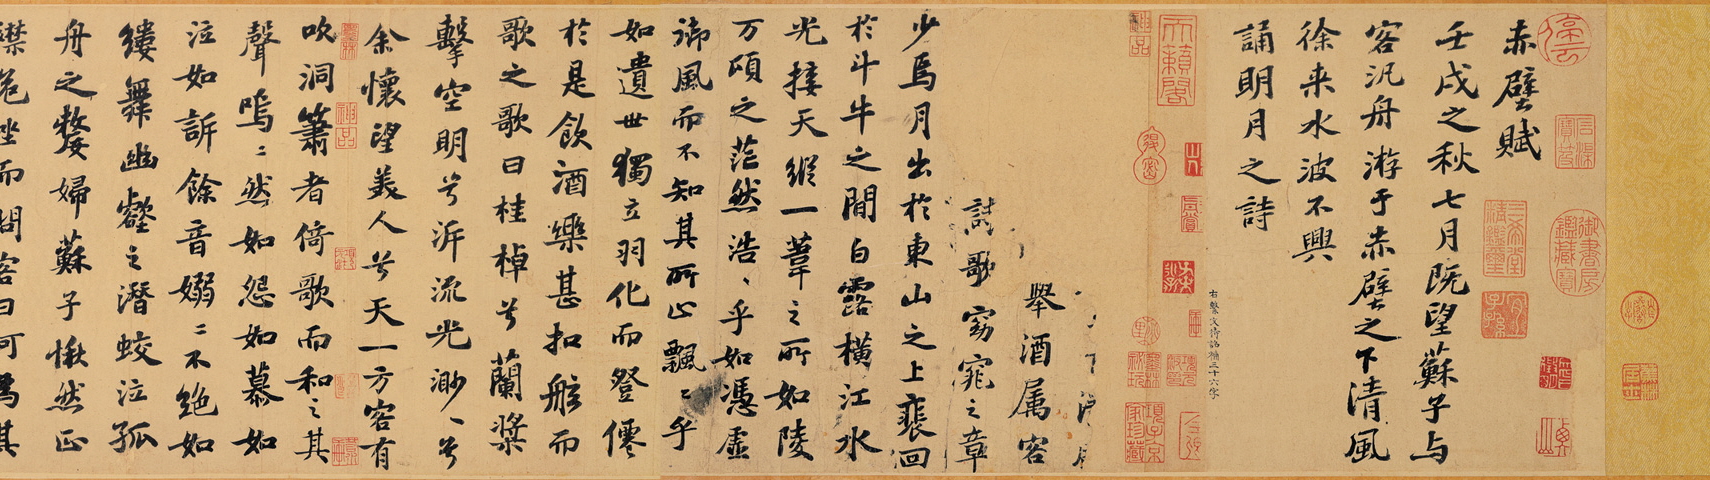 赤壁賦
壬戌之秋七月既望蘇子与
客汎舟游于赤壁之下清風
徐来水波不興
誦明月之詩
右繫文待詔補三十六字
舉酒属客
歌窈窕之章
少焉月出於東山之上裵回
於斗牛之間白露橫江水
光接天縱一葦之所如陵
万頃之茫然浩〻乎如憑虛
御風而不知其所止飄〻乎
如遺世獨立羽化而登僊
於是飲酒樂甚扣舷而
歌之歌曰桂棹兮蘭槳
擊空明兮泝流光渺〻兮
余懷望美人兮天一方客有
吹洞簫者倚歌而和之其
聲嗚〻然如怨如慕如
泣如訴餘音嫋〻不絶如
縷舞幽壑之潛蛟泣孤
舟之嫠婦蘇子愀然正
襟危坐而問客曰何為其
御書房鑑藏寶
三希堂精鑑璽
宜子孫
天籟閣
項子京家珍藏